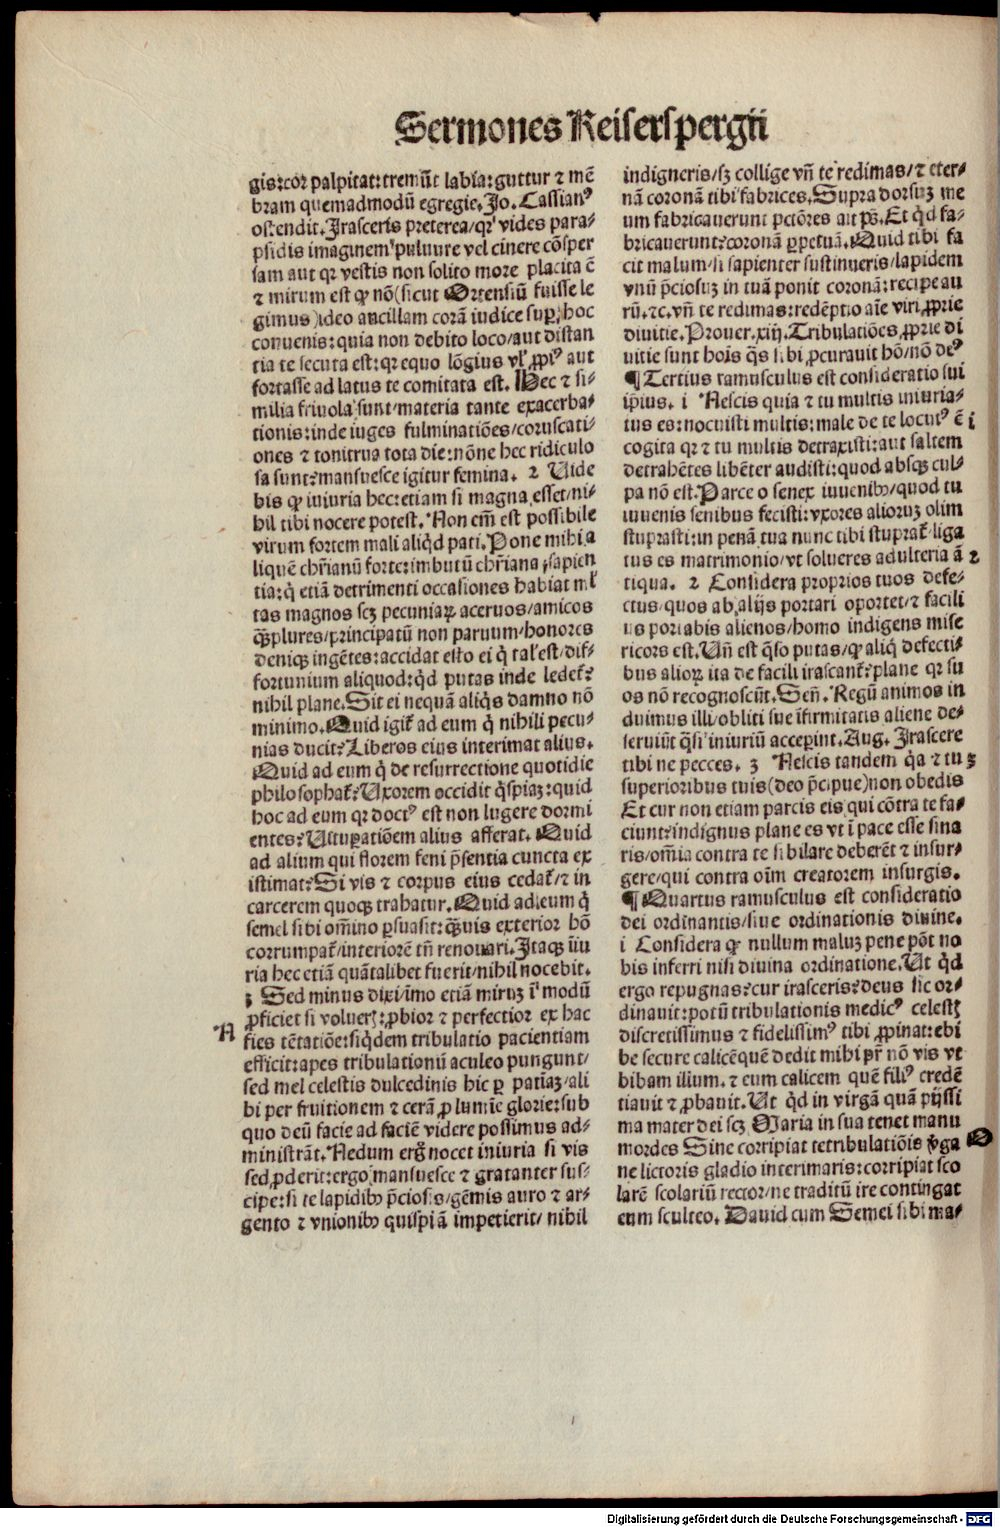 Sermones Keiserspergii
gis:cor palpitat:tremūt labia:guttur ⁊ mē
bram quemadmodū egregie. Jo. Cassianꝰ
ostendit. Irasceris preterea/qꝛ vides para-
psidis imaginem puluure vel cinere cōsper
sam aut qꝛ vestis non solito more placita ē
⁊ mirum est ꝙ nō (sicut Ortensiū fuisse le
gimus) ideo ancillam corā iudice suꝑ hoc
conuenis: quia non debito loco/aut distan
tia te secuta est: qꝛ equo lōgius vl' ꝓpiꝰ aut
fortasse ad latus te comitata est. Hec ⁊ si-
milia friuola sunt materia tante exacerba-
tionis: inde iuges fulminatiōes/coruscati-
ones ⁊ tonitrua tota die: nōne hec ridiculo
sa sunt? mansuesce igitur femina. 2 Vide
bis ꝙ iniuria hec: etiam si magna esset/ni-
hil tibi nocere potest. Non em̄ est possibile
virum fortem mali aliq̇d pati. Pone mihi a
liquē chr̄ianū forte: imbutū chr̄iana sapien
tia: q̇ etiā detrimenti occasiones habiat ml'
tas magnos scꝫ pecuniaꝝ aceruos/amicos
qꝫplures/principatū non paruum/honores
deniqꝫ ingētes: accidat esto ei q̇ tal' est/dif-
fortunium aliquod: q̇d putas inde ledet᷑?
nihil plane. Sit ei nequā aliq̇s damno nō
minimo. Quid igit᷑ ad eum q̇ nihili pecu-
nias ducit? Liberos eius interimat alius.
Quid ad eum q̇ de resurrectione quotidie
philosophat᷑? Uxorem occidit q̇spiaꝫ: quid
hoc ad eum qꝛ doctꝰ est non lugere dormi
entes? Vituꝑatiōem alius afferat. Quid
ad alium qui florem feni p̄sentia cuncta ex
istimat? Si vis ⁊ corpus eius cedat᷑/⁊ in
carcerem quoqꝫ trahatur. Quid ad eum q̇
semel sibi om̄ino ꝑsuasit: qꝫuis exterior hō
corrumpat᷑/interiorē tn̄ renouari. Itaqꝫ iiu
ria hec etiā quātalibet fuerit/nihil nocebit.
3 Sed minus dixi/imo etiā miruꝫ ī modū
ꝓficiet si volueꝝ: ꝓbior ⁊ perfectior ex hac
N
fies tētatiōe: siq̇dem tribulatio pacientiam
efficit: apes tribulationū aculeo pungunt/
sed mel celestis dulcedinis hic ꝑ patiaꝫ/ali
bi per fruitionem ⁊ cerā ꝓ lumīe glorie: sub
quo deū facie ad faciē videre possimus ad-
ministrāt. Nedum erg̊ nocet iniuria si vis
sed ꝓderit: ergo mansuesce ⁊ gratanter sus-
cipe: si te lapidibꝫ p̄ciosis/gēmis auro ⁊ ar-
gento ⁊ vnionibꝫ quispiā impetierit/ nihil
indigneris/sꝫ collige vn̄ te redimas/⁊ eter-
nā coronā tibi fabrices. Supra dorsuꝫ me
um fabricauerunt pctōres ait ps̄. Et q̇d fa-
bricauerunt? coronā ꝑpetuā. Quid tibi fa
cit malum/si sapienter sustinueris/lapidem
vnū p̄ciosuꝫ in tuā ponit coronā: recipe au
rū. ⁊c. vn̄ te redimas: redēptio aīe viri ꝓprie
diuitie. Prouer. xiij. Tribulatiōes ꝓprie di
uitie sunt hoīs q̄s sibi ꝓcurauit hō/nō deꝰ
¶ Tertius ramusculus est consideratio sui
ip̄ius. i Nescis quia ⁊ tu multis iniuria-
tus es: nocuisti multis: male de te locutꝰ ē i
cogita qꝛ ⁊ tu multis detraxisti: aut saltem
detrahētes libēter audisti: quod absqꝫ cul-
pa nō est. Parce o senex iuuenibꝫ/quod tu
iuuenis senibus fecisti: vxores alioruꝫ olim
stuprasti: in penā tua nunc tibi stuprat᷑. liga
tus es matrimonio/vt solueres adulteria ā 2
tiqua. 2 Considera proprios tuos defe-
ctus/quos ab alijs portari oportet/⁊ facili
us portabis alienos/homo indigens mise
ricors est. Vn̄ est q̄so putas/ꝙ aliq̇ defecti-
bus alioꝝ ita de facili irascant᷑? plane qꝛ su
os nō recognoscūt. Sen̄. Regū animos in
duimus illi/obliti sue īfirmitatis aliene de-
seruiūt q̄si iniuriū acceꝑint. Aug. Irascere
tibi ne pecces. 3 Nescis tandem q̇a ⁊ tu 3
superioribus tuis (deo p̄cipue) non obedis
Et cur non etiam parcis eis qui cōtra te fa-
ciunt? indignus plane es vt ī pace esse sina
ris/om̄ia contra te sibilare deberēt ⁊ insur-
gere/qui contra oīm creatorem insurgis.
¶ Quartus ramusculus est consideratio
dei ordinantis/siue ordinationis diuine.
i Considera ꝙ nullum maluꝫ pene pōt no
bis inferri nisi diuina ordinatione. Ut q̇d
ergo repugnas? cur irasceris? deus sic or-
dinauit: potū tribulationis medicꝰ celestꝫ
discretissimus ⁊ fidelissimꝰ tibi ꝓpinat: ebi
be secure calicē quē dedit mihi pr̄ nō vis vt
bibam illum. ⁊ eum calicem quē filiꝰ credē
tiauit ⁊ ꝓbauit. Ut q̇d in virgā quā pijssi
ma mater dei scꝫ Maria in sua tenet manu
mordes Sine corripiat te tribulatiōis v̇ga O
ne lictoris gladio interimaris: corripiat sco
larē scolariū rector/ne traditū ire contingat
cum sculteo. Dauid cum Semei sibi ma-
Digitalisierung gefördert durch die Deutsche Forschungsgemeinschaft - DFG